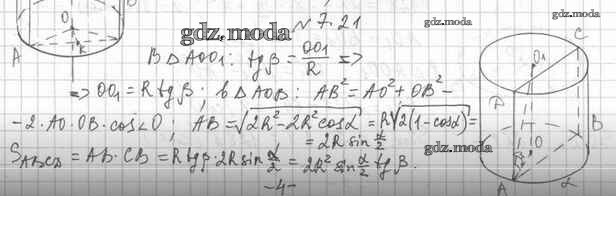 gdz.moda
№ 7.21
gdz.moda
gdz.moda
В △ AOO₁: tg β = OO₁/R =>
=> OO₁ = R tg β; в △ AOB: AB² = AO² + OB² −
− 2·AO·OB·cos∠O; AB = √(2R² − 2R²cos α) = R√(2(1−cos α)) =
= 2R sin α/2
S_ABCD = AD·CB = R tg β · 2R sin α/2 = 2R² sin α/2 tg β.
gdz.moda
−4−
O₁
B
A
K
C
O₁
D
B
O
A
α